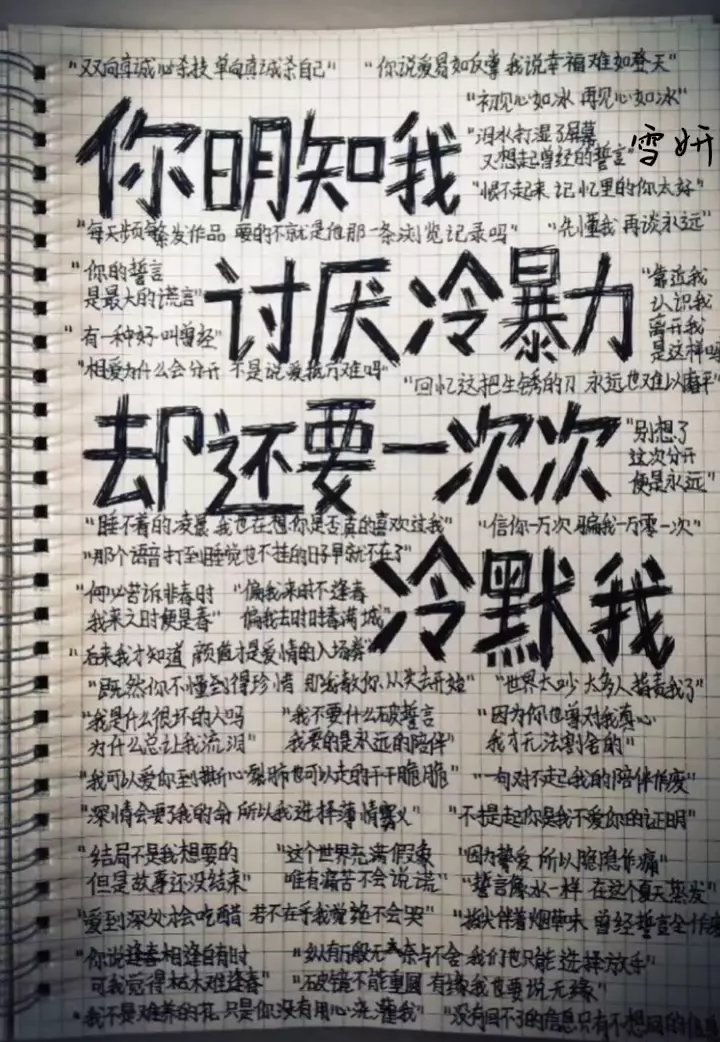 "双向真诚心杀技 单向真诚杀自己" "你说爱易如反掌 我说幸福难如登天"
"初见心如冰 再见心如冰"
你明知我
"泪水打湿了屏幕
又想起曾经的誓言"
雪妍
"恨不起来 记忆里的你太好"
"每天频繁发作品 要的不就是他那一条浏览记录吗" "先懂我 再谈永远"
"你的誓言
是最大的谎言"
讨厌冷暴力
"靠近我
认识我
离开我
是这样吗
"有一种好 叫曾经"
"相爱为什么会分开 不是说爱抵万难吗"
"回忆这把生锈的刀 永远也难以磨平"
却还要一次次
"别想了
这次分开
便是永远"
"睡不着的凌晨 我也在想你是否真的喜欢过我" "信你一万次 骗我一万零一次"
"那个语音打到睡觉也不挂的日子早就不在了"
冷默我
"何必苦诉非春时
我来之时便是春"
"偏我来时不逢春
偏我去时时春满城"
"后来我才知道 颜值才是爱情的入场券"
"既然你不懂到得珍惜 那我教你从失去开始" "世界太吵 太多人指责我了"
"我是什么很坏的人吗
为什么总让我流泪"
"我不要什么破誓言
我要的是永远的陪伴"
"因为你也曾对我真心
我才无法割舍的"
"我可以爱你到撕心裂肺也可以走的干干脆脆" "一句对不起我的陪伴作废"
"深情会要了我的命 所以我选择薄情寡义" "不提起你是我不爱你的证明"
"结局不是我想要的
但是故事还没结束"
"这个世界充满假象
唯有痛苦不会说谎"
"因为挚爱 所以隐隐作痛"
"誓言像水一样 在这个夏天蒸发"
"爱到深处才会吃醋 若不在乎我觉绝不会哭" "指尖伴着烟草味 曾经誓言全作废
"你说逢春相逢自有时
可我觉得枯木难逢春"
"纵有万般无奈与不舍 我们也只能选择放手"
"破镜不能重圆 有缘我也要说无缘"
"我不是难养的花 只是你没有用心浇灌我" "没有回不了的信息只有不想回的信息